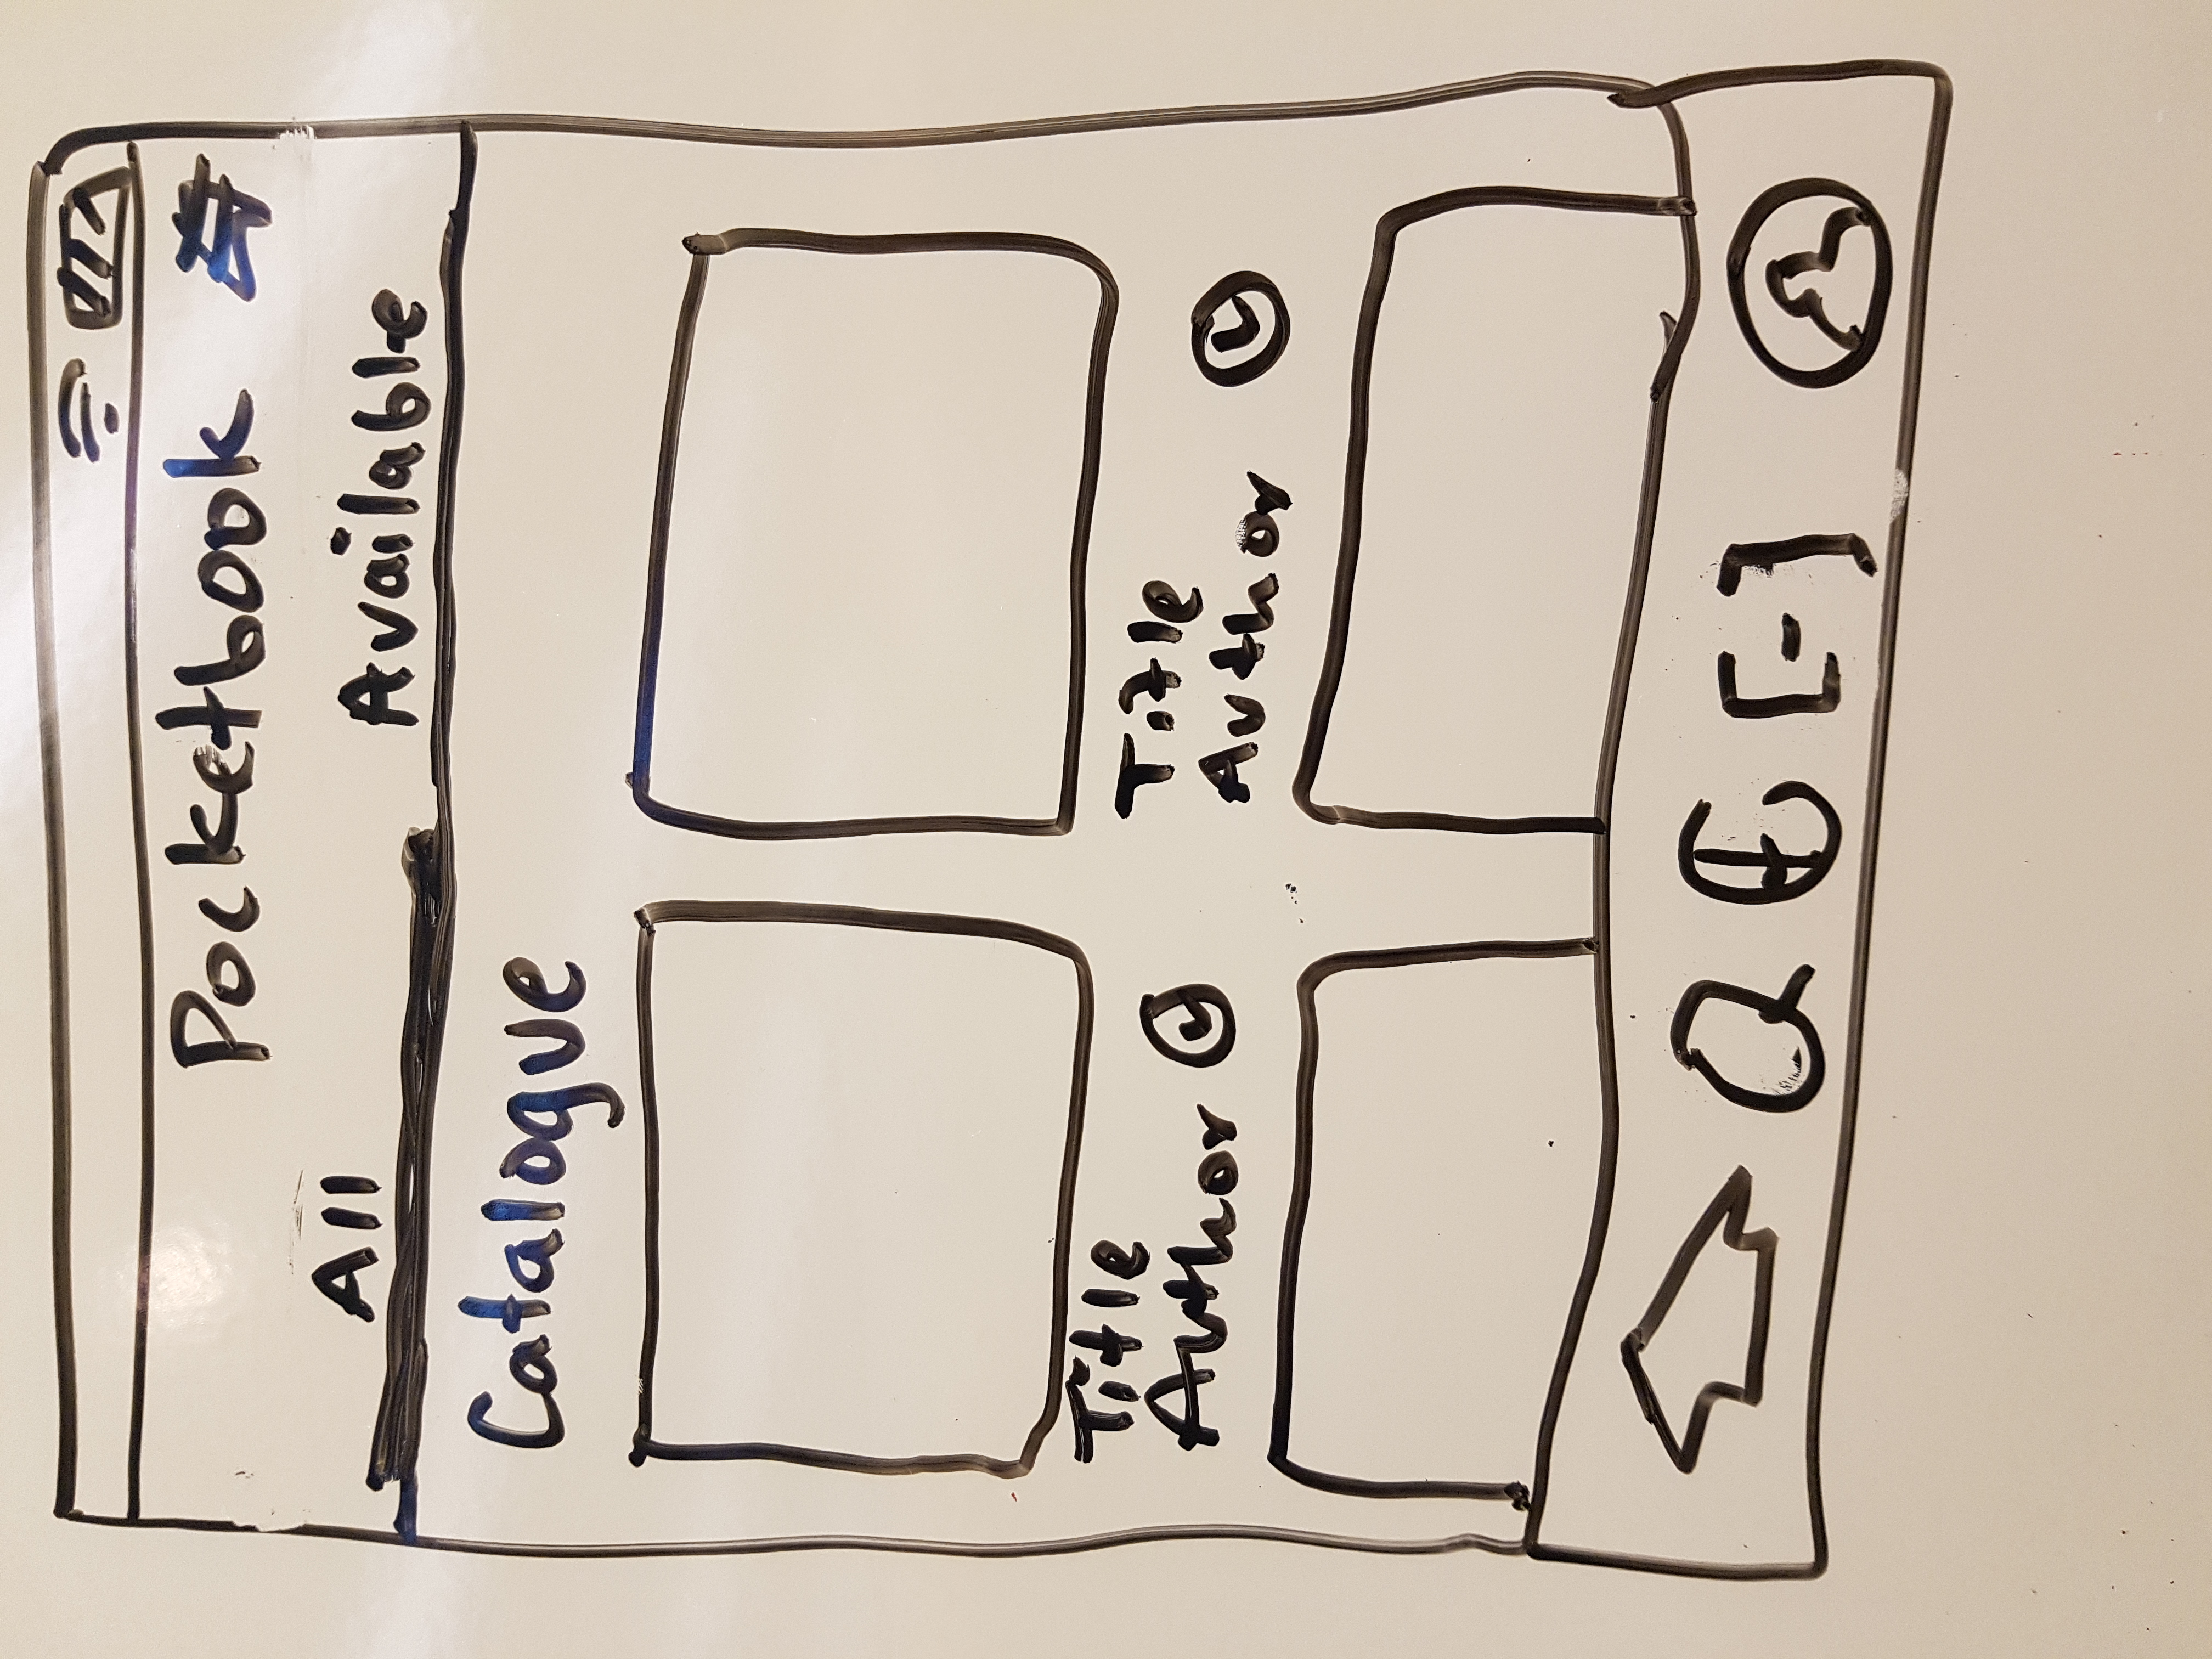 Pocketbook
All Available
Catalogue
Title
Author
Title
Author